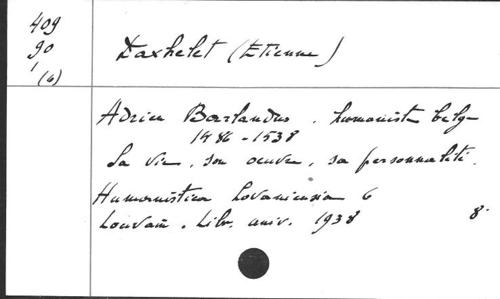 409
90
1
(6)
Daxhelet (Etienne)
Adrien Barlandus, humaniste belge
1486-1538
Sa vie, son oeuvre, sa personnalité.
Humanistica Lovaniensia 6
Louvain. Libr. univ. 1938 8°